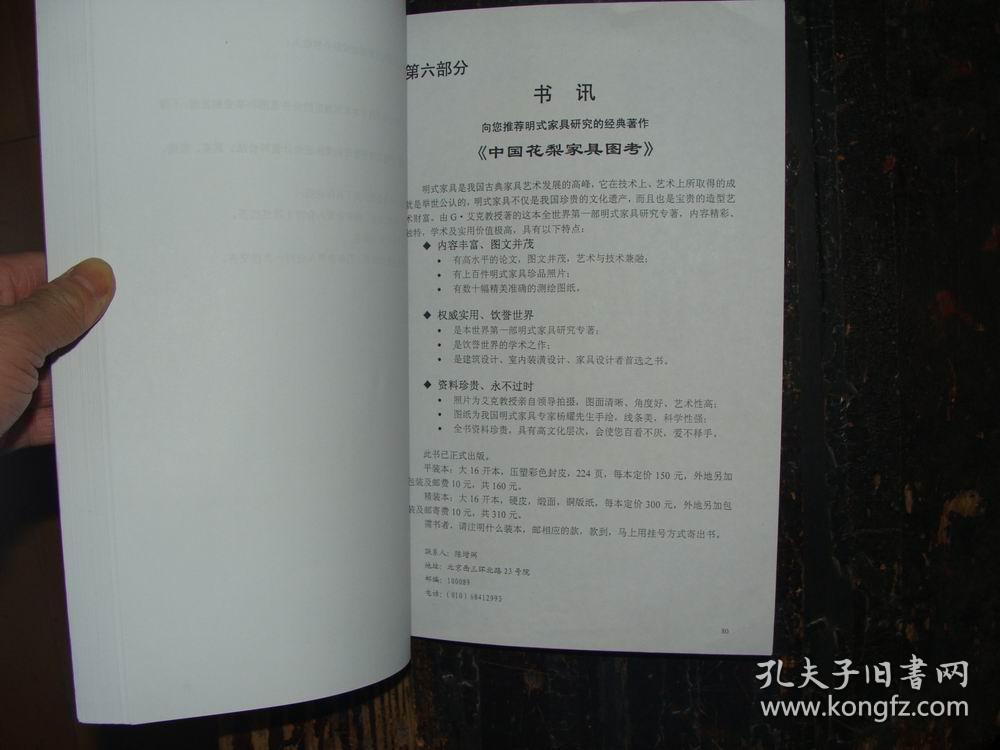 第六部分
书 讯
向您推荐明式家具研究的经典著作
《中国花梨家具图考》
明式家具是我国古典家具艺术发展的高峰，它在技术上、艺术上所取得的成
就是举世公认的，明式家具不仅是我国珍贵的文化遗产，而且也是宝贵的造型艺
术财富。由G·艾克教授著的这本全世界第一部明式家具研究专著，内容精彩、
独特，学术及实用价值极高，具有以下特点：
◆ 内容丰富、图文并茂
• 有高水平的论文，图文并茂，艺术与技术兼融；
• 有上百件明式家具珍品照片；
• 有数十幅精美准确的测绘图纸。
◆ 权威实用、饮誉世界
• 是本世界第一部明式家具研究专著；
• 是饮誉世界的学术之作；
• 是建筑设计、室内装潢设计、家具设计者首选之书。
◆ 资料珍贵、永不过时
• 照片为艾克教授亲自领导拍摄，图面清晰、角度好、艺术性高；
• 图纸为我国明式家具专家杨耀先生手绘，线条美，科学性强；
• 全书资料珍贵，具有高文化层次，会使您百看不厌，爱不释手。
此书已正式出版。
平装本：大16开本，压塑彩色封皮，224页，每本定价150元，外地另加
包装及邮费10元，共160元。
精装本：大16开本，硬皮，缎面，铜版纸，每本定价300元，外地另加包
装及邮寄费10元，共310元。
需书者，请注明什么装本，邮相应的款，款到，马上用挂号方式寄出书。
联系人：陈增弼
地址：北京西三环北路23号院
邮编：100089
电话：(010)68412993
80
孔夫子旧書网
www.kongfz.com